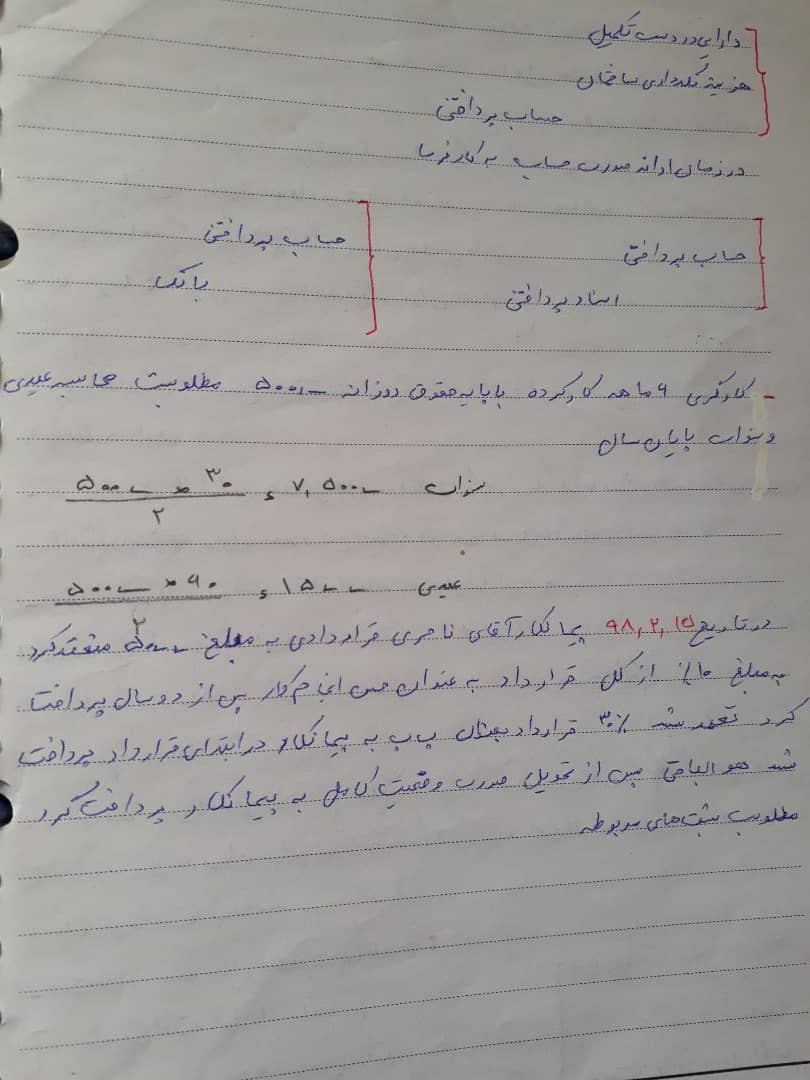 دارایی در دست تکمیل
هزینه نگهداری ساختمان
حساب پرداختنی
در زمان ارائه صورت حساب به کارفرما
حساب پرداختنی
اسناد پرداختنی
حساب پرداختنی
بانک
- کارگری ۶ ماهه کار کرده با پایه حقوق روزانه مطلوبست محاسبه عیدی
و سنوات پایان سال
سنوات
عیدی
در تاریخ ۹۸,۲,۱۵ پیمانکار آقای ناصری قراردادی به مبلغ منعقد کرد
به مبلغ ۱۰٪ از کل قرارداد به عنوان حسن انجام کار پس از دو سال پرداخت
کرد تعهد شد ۳۰٪ قرارداد بعنوان پ پ به پیمانکار در ابتدای قرارداد پرداخت
شد مابقی پس از تحویل صورت وضعیت کامل به پیمانکار پرداخت کرد
مطلوبست ثبت های مربوطه